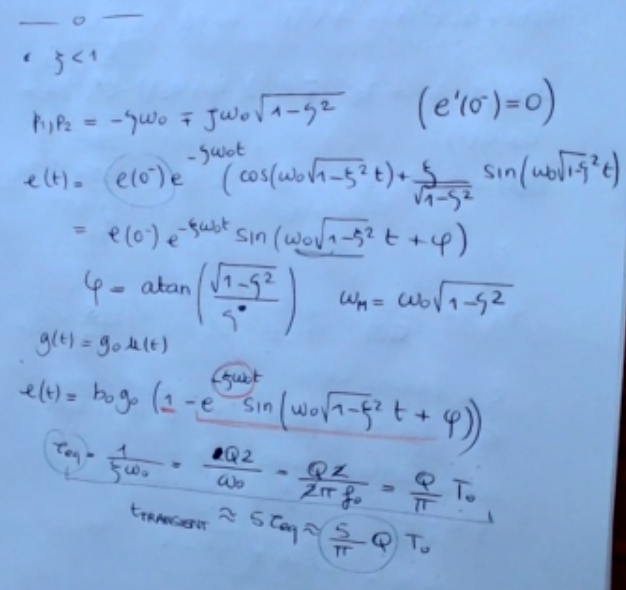 — o —
• ξ < 1
p₁, p₂ = -ξω₀ ∓ jω₀√(1-ξ²) (e'(0⁻)=0)
e(t) = e(0⁻) e^(-ξω₀t) (cos(ω₀√(1-ξ²) t) + ξ/√(1-ξ²) sin(ω₀√(1-ξ²) t)
= e(0⁻) e^(-ξω₀t) sin(ω₀√(1-ξ²) t + φ)
φ = atan(√(1-ξ²)/ξ) ω_M = ω₀√(1-ξ²)
g(t) = g₀ u(t)
e(t) = b₀g₀ (1 - e^(-ξω₀t) sin(ω₀√(1-ξ²) t + φ))
τ_eq = 1/(ξω₀) = Q2/ω₀ = Q2/(2πf₀) = Q/π T₀
t_TRANSIENT ≈ 5τ_eq ≈ 5/π Q T₀